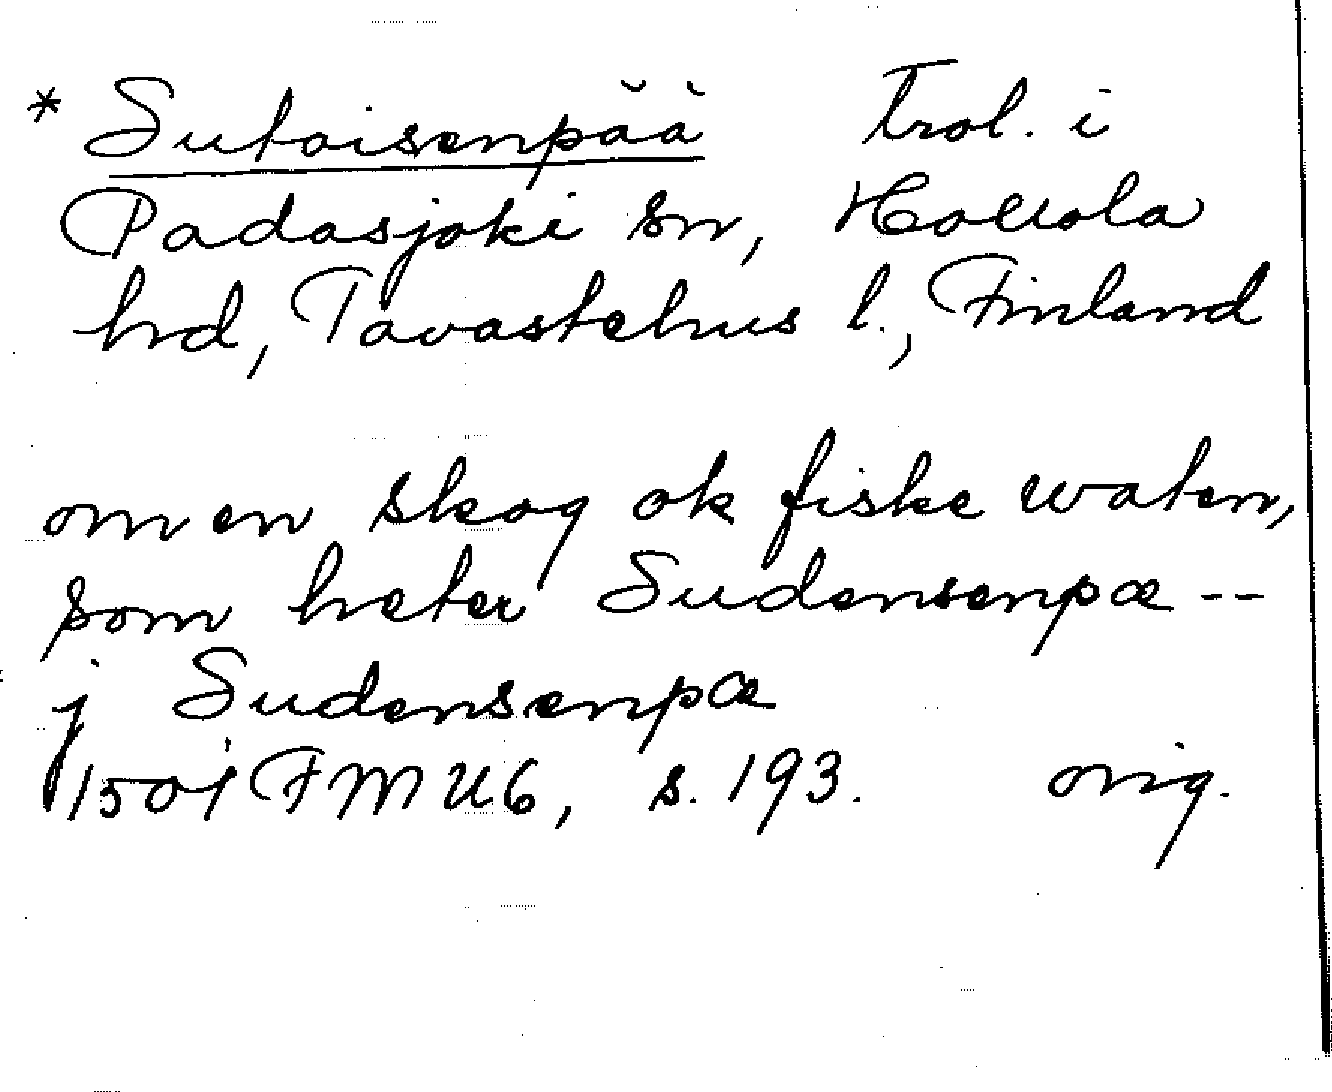 * Sutoisenpää Trol. i
Padasjoki sn, Hollola
hrd, Tavastehus l., Finland
om en skog ok fiske waten,
som heter Sudensenpæ --
j Sudensenpæ
1501 FMU6, s. 193. orig.